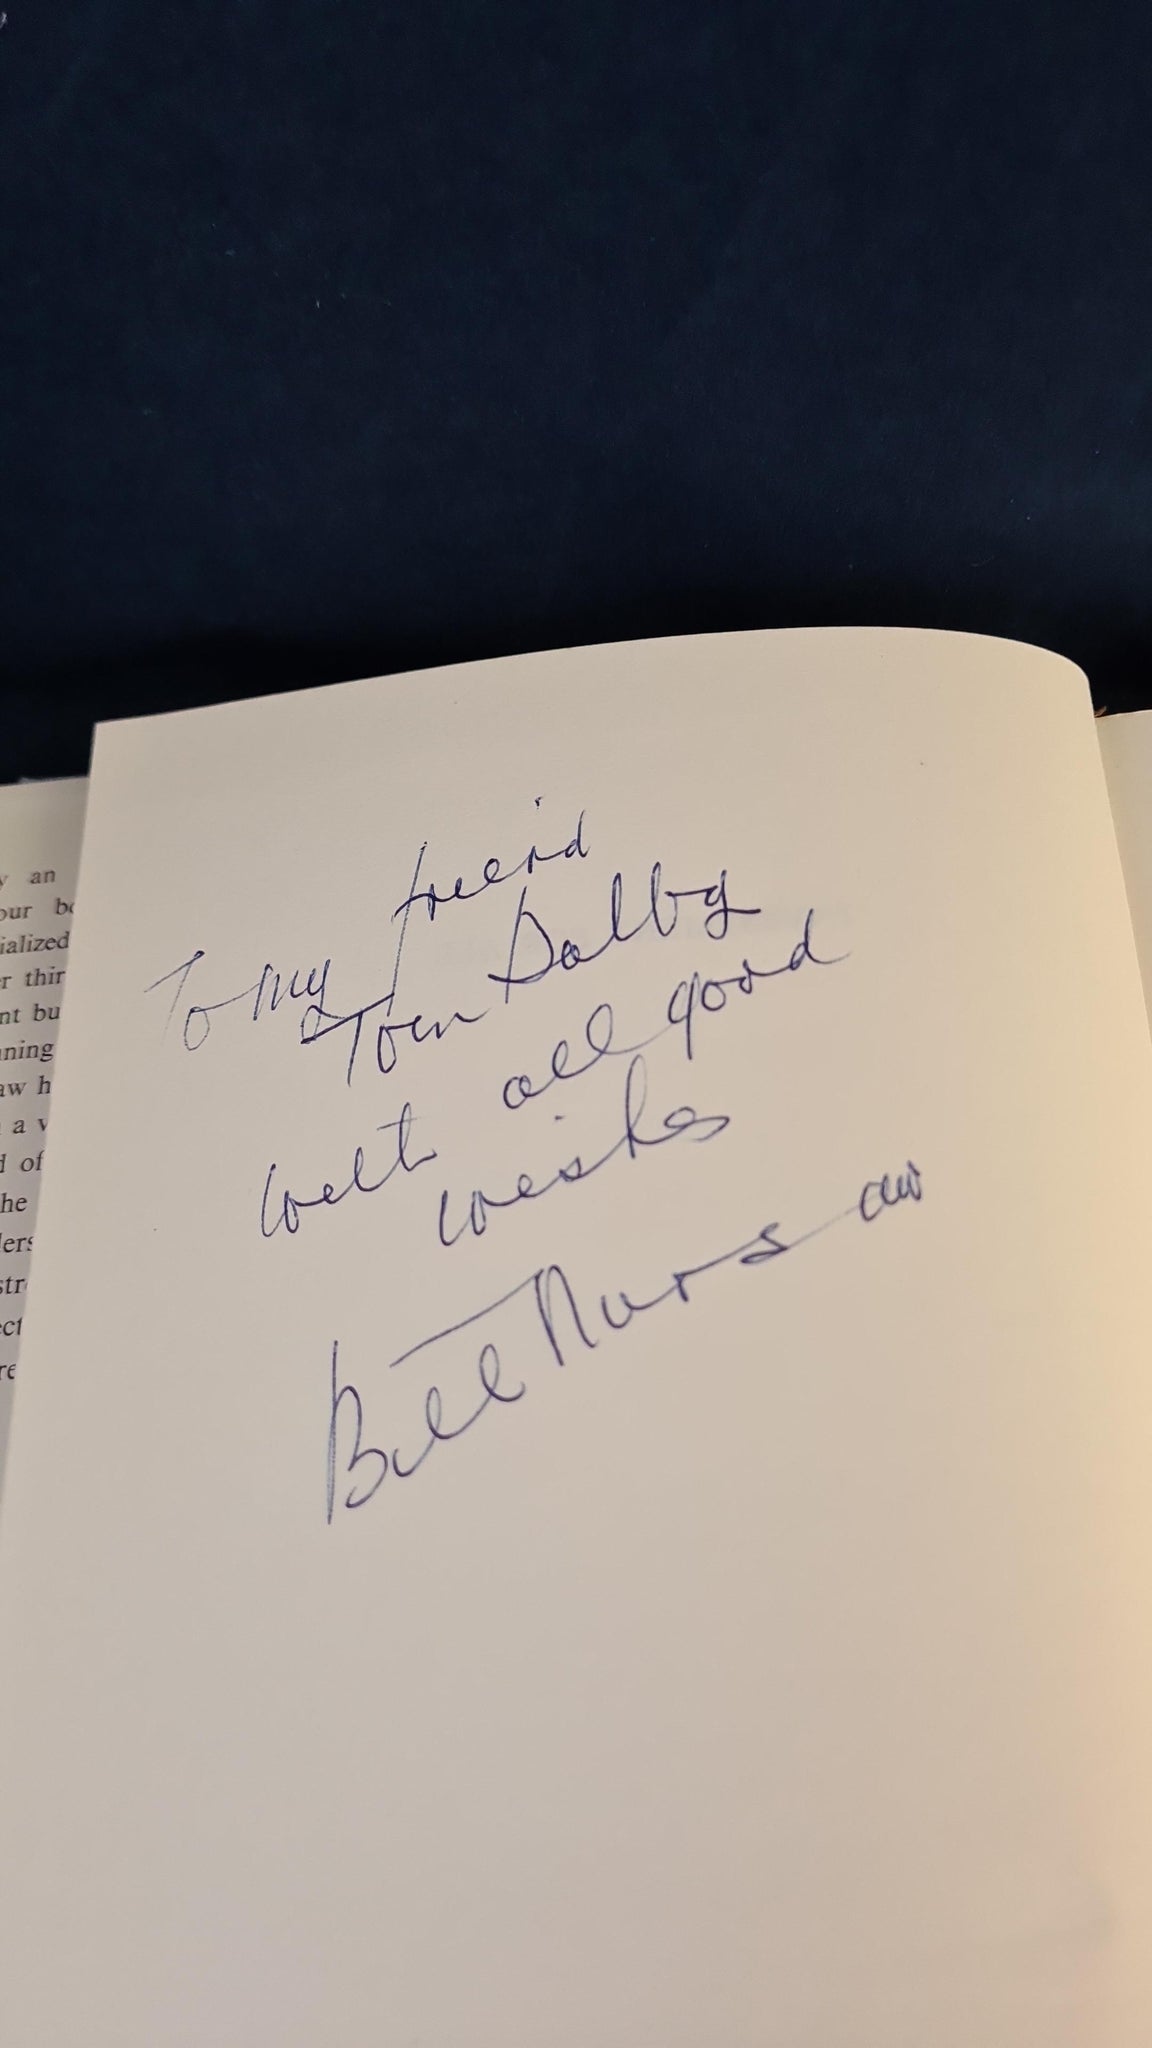 y an
our bo
ialized
r thir
nt bu
nning
aw h
a v
d of
he
lers
str
ect
re
friend
To my
Tom Dalby
with all good
wishes
Bill